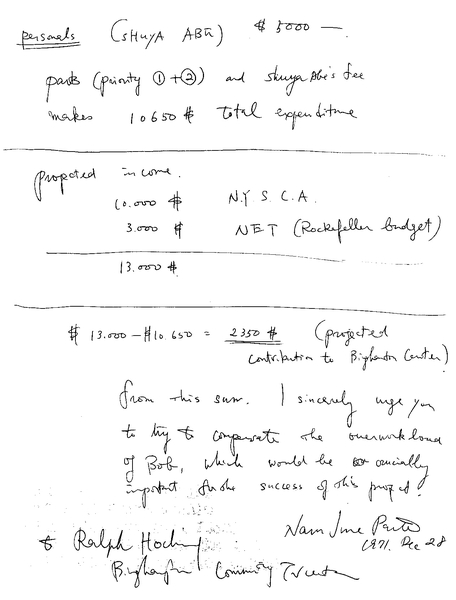 personals (SHUYA ABE) $ 5000 —
parts (priority ① + ②) and Shuya Abe's fee
makes 10650 $ Total expenditure
Propoted income.
10.000 $ N.Y S.C.A.
3.000 $ NET (Rockefeller budget)
13.000 $
$ 13.000 — $10.650 = 2350 $ (projected
contribution to Binghamton Center)
from this sum. I sincerely urge you
to try to compensate the overworkload
of Bob, which would be crucially
important for the success of this project.
Nam June Paik
1971. Dec 28
to Ralph Hocking
Binghamton Community TV center